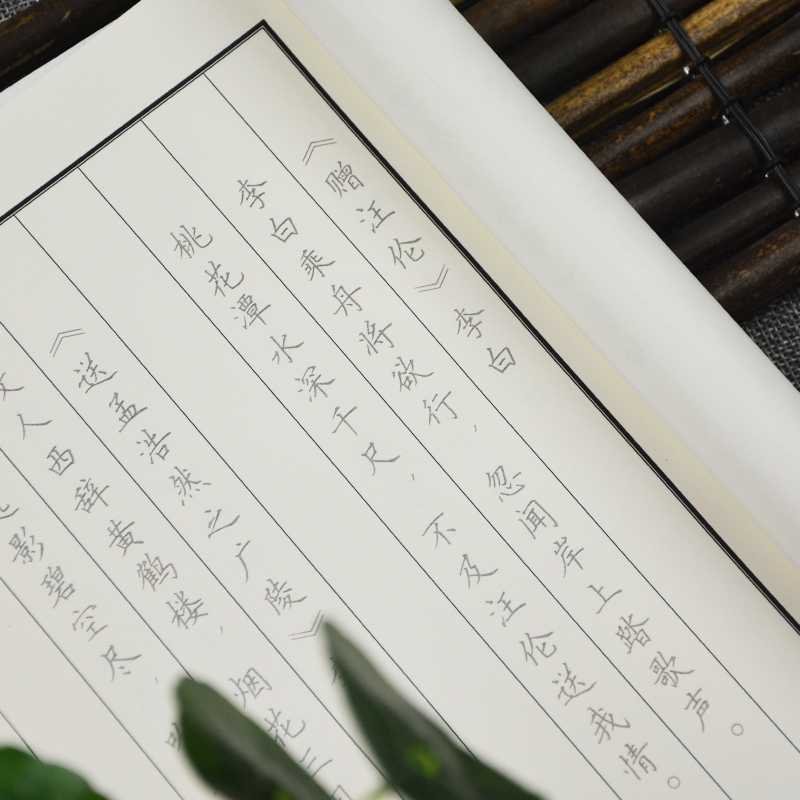 《赠汪伦》李白
李白乘舟将欲行，忽闻岸上踏歌声。
桃花潭水深千尺，不及汪伦送我情。
《送孟浩然之广陵》
人西辞黄鹤楼，烟花三
影碧空尽，